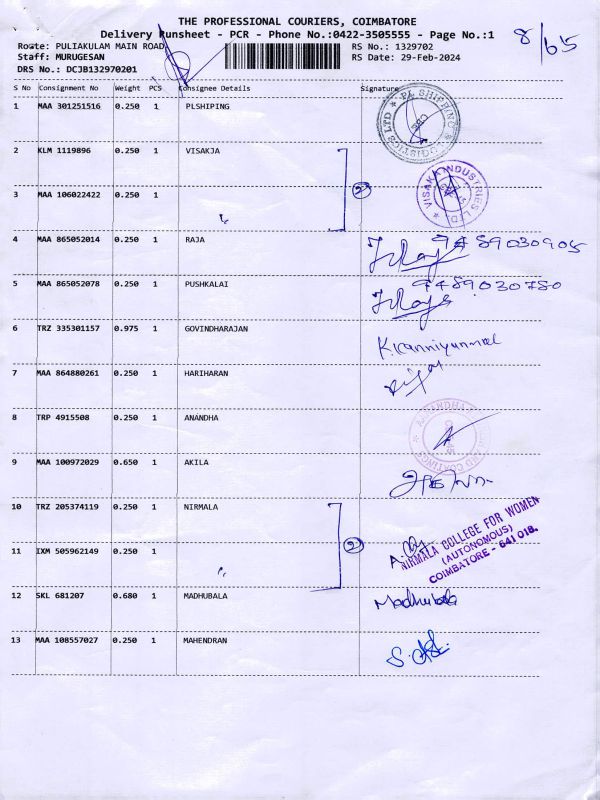 THE PROFESSIONAL COURIERS, COIMBATORE
Delivery Runsheet - PCR - Phone No.:0422-3505555 - Page No.:1
8/65
Route: PULIAKULAM MAIN ROAD RS No.: 1329702
Staff: MURUGESAN RS Date: 29-Feb-2024
DRS No.: DCJB132970201
S No Consignment No Weight PCS Consignee Details Signature
1 MAA 301251516 0.250 1 PLSHIPING
PL SHIPPING & LOGISTICS LTD
2 KLM 1119896 0.250 1 VISAKJA
VISAKA INDUSTRIES LTD.
3 MAA 106022422 0.250 1 " 2
4 MAA 865052014 0.250 1 RAJA 9489030905
5 MAA 865052078 0.250 1 PUSHKALAI 9489030780
6 TRZ 335301157 0.975 1 GOVINDHARAJAN K.kanniyammal
7 MAA 864880261 0.250 1 HARIHARAN
8 TRP 4915508 0.250 1 ANANDHA
9 MAA 100972029 0.650 1 AKILA
10 TRZ 205374119 0.250 1 NIRMALA
NIRMALA COLLEGE FOR WOMEN
(AUTONOMOUS)
COIMBATORE - 641 018.
11 IXM 505962149 0.250 1 " 2
12 SKL 681207 0.680 1 MADHUBALA Madhubala
13 MAA 108557027 0.250 1 MAHENDRAN